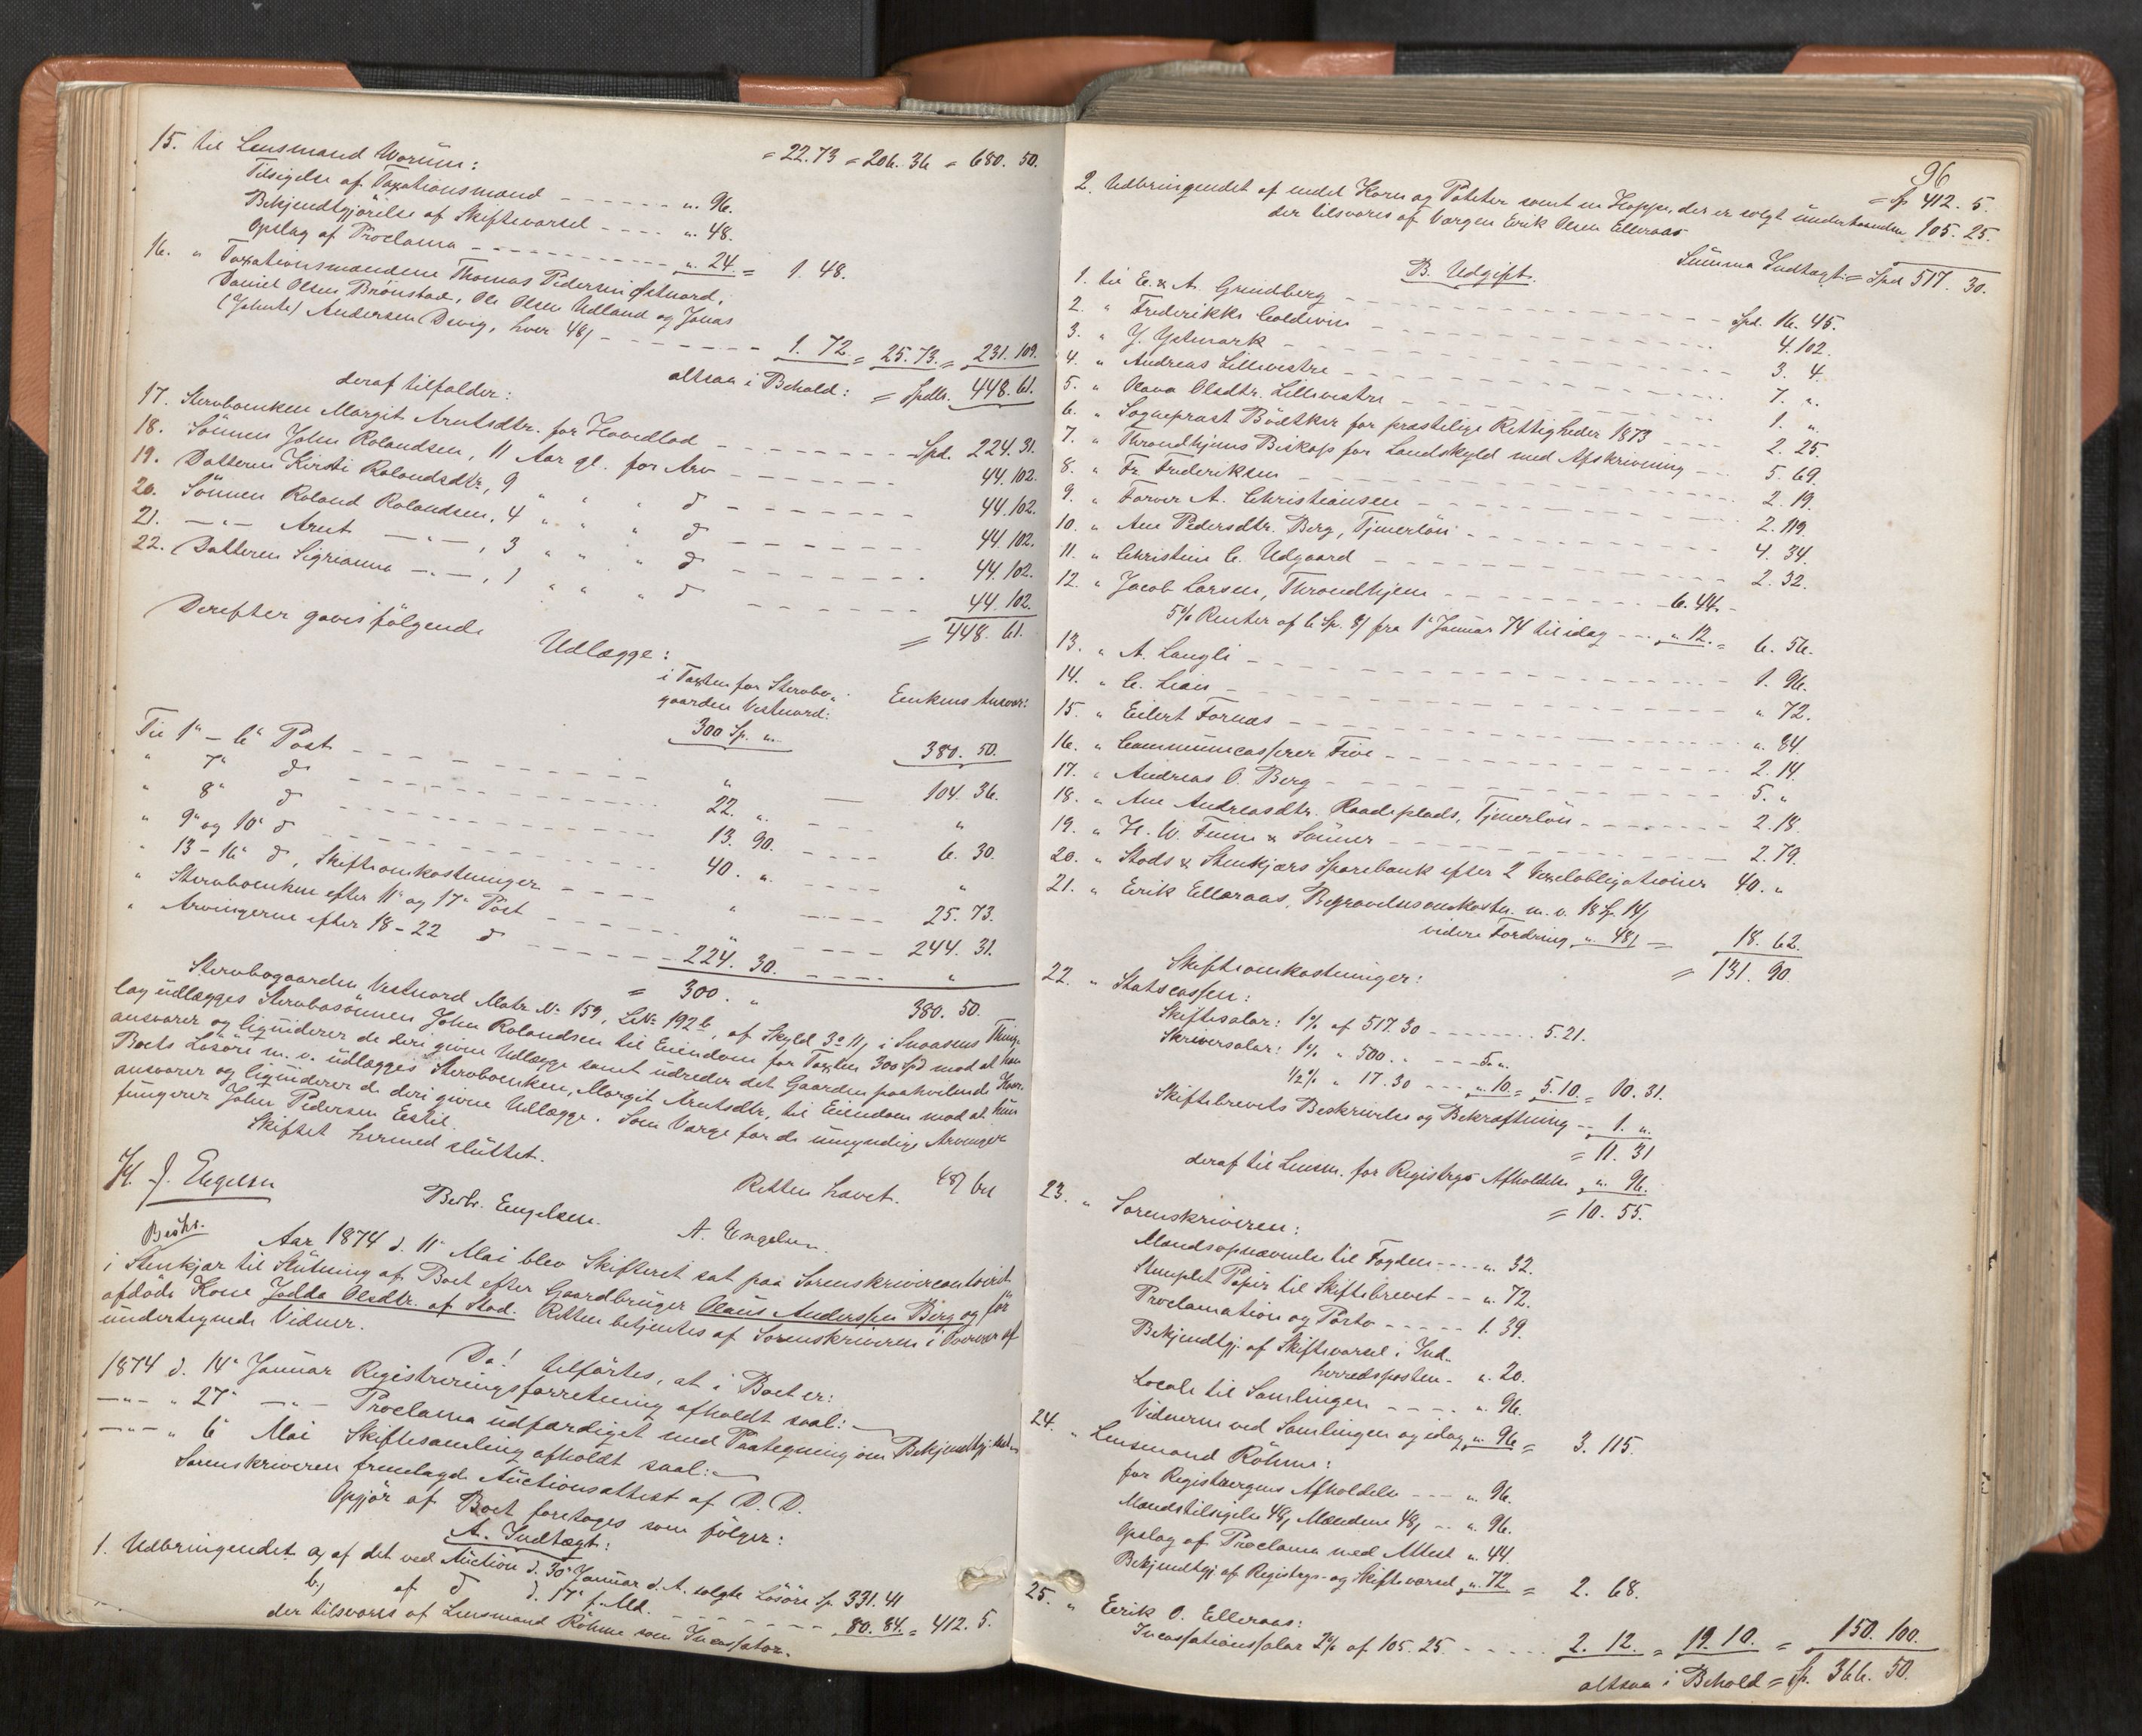 15. til Lensmand Worum: = 22.73 = 206.36 = 680. 50.
Tilsigelse af Taxationsmænd - - - - - - „. 96.
Bekjendtgjörelse af Skiftevarsel - - - - „. 48.
Opslag af Proclama - - - - - - - - - „. 24. = 1. 48.
16. „ Taxationsmændene Thomas Pedersen Østnord,
Daniel Olsen Brönstad, Ole Olsen Udland og Jonas
(Johnts) Andersen Devig, hver 48/ - - - - - - - 1. 72. = 25.73. = 231. 109.
altsaa i Behold: = Spdlr. 448. 61.
deraf tilfalder:
17. Stervboenken Margit Arntsdtr. for Hovedlod - - - - - - - - Spd. 224. 31.
18. Sönnen John Rolandsen, 11 Aar gl. for Arv - - - - - - 44. 102.
19. Datteren Kirsti Rolandsdtr, 9 „ „ „ d - - - - - - - 44. 102.
20. Sönnen Roland Rolandsen, 4 „ „ „ d - - - - - - - 44. 102.
21. —„— Arnt —„—, 3 „ „ „ d - - - - - - - 44. 102.
22. Datteren Sigrianna —„—, 1 „ „ „ d - - - - - - - 44. 102.
= 448. 61.
Derefter gaves følgende
Udlægge:
i Taxten for Stervbo-
gaarden Vestnord: Enkens Ansvar:
300 Sp. „. 380. 50.
Til 1ste - 6te Post - - - - - - „ — 104. 36.
„ 7de d - - - - - - 22. „. - - - - „
„ 8de d - - - - - - 13. 90. - - - - 6. 30.
„ 9de og 10de d - - - - - - 40. „. - - - - „
„ 13-16de d, Skifteomkostninger - - - - „ - - - - 25. 73.
„ Stervboenken efter 11te og 17de Post - - - - „ - - - - 244. 31.
„ Arvingerne efter 18-22 d - - - - - 224. 30. - - - - „
= 300. „ 380. 50.
Stervbogaarden Vestnord Matr. No 159, LNo 192b, af Skyld 3 11/, i Snaasens Thing-
lag udlægges Stervbosönnen John Rolandsen til Eiendom for Taxten 300 Spd mod at han
ansvarer og liquiderer de deri givne Udlægge samt udreder det Gaarden paahvilende Kaar.
Boets Lösöre m. v. udlægges Stervboenken, Margit Arntsdtr, til Eiendom mod at hun
ansvarer og liquiderer de deri givne Udlægge. Som Værge for de umyndige Arvinger
fungerer John Pedersen Eestil.
Skiftet hermed sluttet.
Retten hævet.
H. J. Engelsen Berbr. Engelsen. A. Engelsen.
Aar 1874 d. 11te Mai blev Skifteret sat paa Sorenskrivercontoiret
i Stenkjær til Slutning af Boet efter Gaardbruger Olaus Anderssen Berg og för
afdöde Kone Jödda Olsdtr. af Stod. Retten betjentes af Sorenskriveren i Overvær af
undertegnede Vidner.
Da! tilførtes, at i Boet er:
1874 d. 14de Januar Registreringsforretning afholdt saal:
—„— „ 27de —„— Proclama udfærdiget med Paategning om Bekjendtgj.
—„— „ 6te Mai Skiftesamling afholdt saal:
Sorenskriveren fremlagde Auctionsattest af D. D.
Opgjör af Boet foretoges som fölger:
A. Indtægt:
1. Udbringendet a, af det ved Auction d. 30te Januar d. A. solgte Lösöre Sp. 331. 41
b, af d d. 17de f. Md. - - - - - - 80. 84. = 412. 5.
der tilsvares af Lensmand Röhme som Incassator.
96
= Sp 412. 5.
2. Udbringendet af endel Korn og Poteter samt en Hoppe, der er solgt underhaanden 105. 25.
der tilsvares af Værgen Erik Olsen Elleraas
Summa Indtægt = Spd 517. 30.
B. Udgift.
1. til E. & A. Grundberg - - - - - - Spd. 16. 45.
2. „ Frederikke Coldevin - - - - - - 4. 102.
3. „ J. Getmark - - - - - - 3. 4.
4. „ Andreas Lillevestre - - - - - - 7. „.
5. „ Olava Olsdtr. Lillevestre - - - - - - 1. „.
6. „ Sogneprest Bödtker for præstelige Rettigheder 1873 - - - - 2. 25.
7. „ Throndhjems Biskop for Landskyld med Afskrivning - - 5. 69.
8. „ Fr. Frederiksen - - - - - - 2. 19.
9. „ Farver A. Christiansen - - - - - - 2. 119.
10. „ Ane Pedersdtr. Berg, Tjenerlön - - - - - - 4. 34.
11. „ Christine C. Udgaard - - - - - - 2. 32.
12. „ Jacob Larsen, Throndhjem - - - - - - 6. 44. -
5% Renter af 6 Sp. 8/ fra 1ste Januar 74 til idag - - - „. 12. = 6. 56.
13. „ A. Langli - - - - - - 1. 96.
14. „ C. Lian - - - - - - „. 72.
15. „ Eilert Fornæs - - - - - - „. 84.
16. „ Communecasserer Five - - - - - - 2. 14.
17. „ Andreas O. Berg - - - - - - 5. „
18. „ Ane Andreasdtr. Raadeplads, Tjenerlön - - - - - - 2. 18.
19. „ H. W. Finne & Sönner - - - - - - 2. 79.
20. „ Stods & Stenkjærs Sparebank efter 2 Vexelobligationer 40. „
21. „ Erik Elleraas, Begravelsesomkostn. m. v. 18 Sp. 14/
videre Fordring „. 48/ = 18. 62.
= 131. 90.
Skifteomkostninger:
22. „ Statscassen:
Skiftesalær: 1% af 517. 30 - - - - - - 5. 21.
Skriversalær: 1% „ 500. „. - - - 5. „.
1/2% „ 17. 30 - - - „. 10. = 5. 10. = 10. 31.
Skiftebrevets Beskrivelse og Bekræftning - - 1. „.
= 11. 31
deraf til Lensm. for Registrgs Afholdelse „. 96.
= 10. 55.
23. „ Sorenskriveren:
Mandsopnævnelse til Fogden - - - „. 32.
Stemplet Papir til Skiftebrevet - - „. 72.
Proclamation og Porto - - - - - 1. 39.
Bekjendtgj. af Skiftevarsel i Ind-
herredsposten - „. 20.
Locale til Samlingen - - - - „. 96.
Vidnerne ved Samlingen og idag „. 96 = 3. 115.
24. „ Lensmand Röhme:
for Registreringens Afholdelse - - - „. 96.
Mandstilsigelse 48/, Mændene 48/ - - „. 96.
Opslag af Proclama med Attest „. 44.
Bekjendtgj. af Registrgs- og Skiftevarsel „. 72 = 2. 68.
25. „ Erik O. Elleraas:
Incassationssalær 2% af 105. 25. - - - - - 2. 12. = 19. 10. = 150. 100.
altsaa i Behold = Sp. 366. 50.